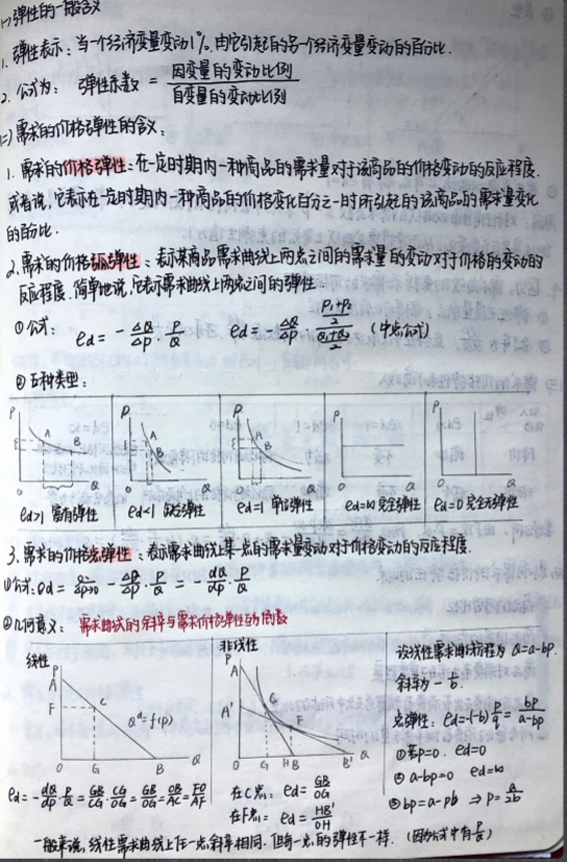 (一)弹性的一般含义
1. 弹性表示：当一个经济变量变动1%，由它引起的另一个经济变量变动的百分比.
2. 公式为：弹性系数 = 因变量的变动比例 / 自变量的变动比例
(二)需求的价格弹性的含义：
1. 需求的价格弹性：在一定时期内一种商品的需求量对于该商品的价格变动的反应程度.
或者说，它表示在一定时期内一种商品的价格变化百分之一时所引起的该商品的需求量变化
的百分比.
2. 需求的价格弧弹性：表示某商品需求曲线上两点之间的需求量的变动对于价格的变动的
反应程度. 简单地说，它表示需求曲线上两点之间的弹性
①公式： ed = - ΔQ/ΔP · P/Q ed = - ΔQ/ΔP · (P1+P2)/2 / (Q1+Q2)/2 (中点公式)
②五种类型：
P A B O Q
P A B O Q
P A B O Q
P O Q
P O Q
ed>1 富有弹性 ed<1 缺乏弹性 ed=1 单位弹性 ed=∞ 完全弹性 ed=0 完全无弹性
3. 需求的价格点弹性：表示需求曲线上某一点的需求量变动对于价格变动的反应程度.
①公式: ed = - ΔQ/ΔP · P/Q = - dQ/dP · P/Q
②几何意义： 需求曲线的斜率与需求价格弹性的倒数
线性
P A F C Qd=f(P) O G B Q
ed = - dQ/dP · P/Q = GB/CG · CG/OG = GB/OG = CB/AC = FO/AF
非线性
P A A' C F O G H B B' Q
在C点: ed = GB/OG
在F点: ed = HB'/OH
设线性需求曲线方程为 Q=a-bP.
斜率为 - 1/b.
点弹性: ed=-(-b) P/Q = bP/a-bP
①若P=0. ed=0
② a-bP=0 ed=∞
③ bP=a-Pb ⇒ P=a/2b
一般来说，线性需求曲线上任一点斜率相同. 但每一点的弹性不一样. (因为公式中有P/Q)